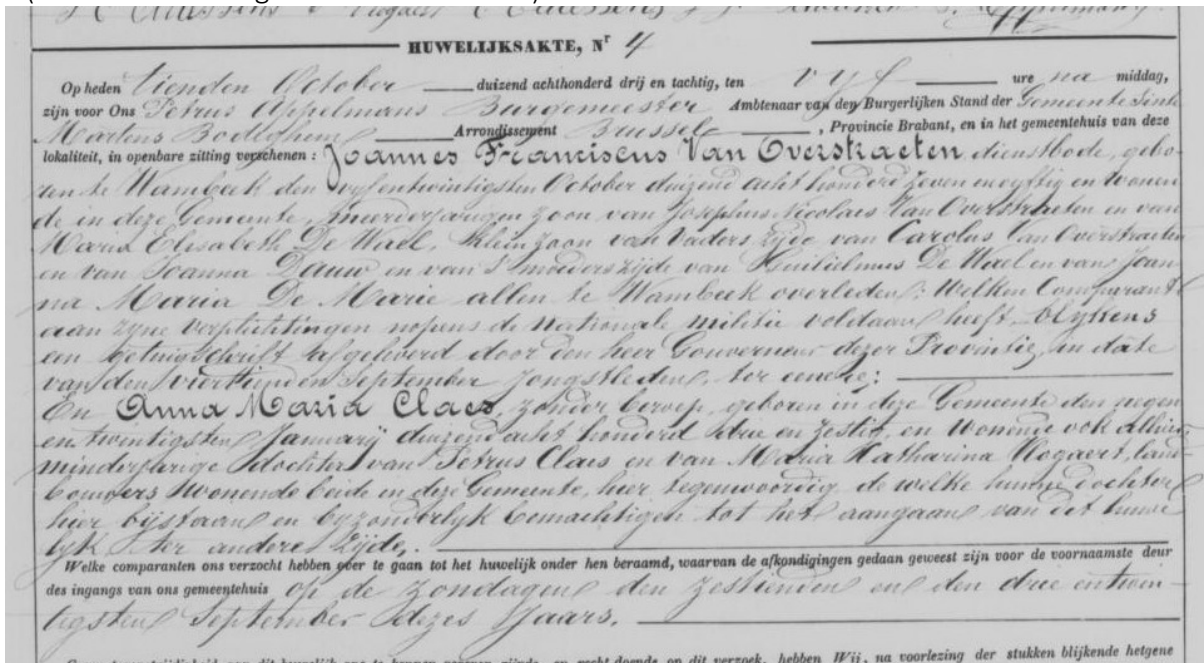 HUWELIJKSAKTE, Nr 4
Op heden tienden October duizend achthonderd drij en tachtig, ten vyf ure na middag,
zijn voor Ons Petrus Appelmans Burgemeester Ambtenaar van den Burgerlijken Stand der Gemeente Sint
Martens Bodeghem Arrondissement Brussel, Provincie Brabant, en in het gemeentehuis van deze
lokaliteit, in openbare zitting verschenen : Joannes Franciscus Van Overstraeten dienstbode, gebo-
ren te Wambeek den vyfentwintigsten October duizend acht honderd zeven en vyftig en wonen
de in deze Gemeente, meerderjarigen zoon van Josephus Nicolaus Van Overstraeten en van
Maria Elisabeth De Wael, kleinzoon van vaders zijde van Carolus Van Overstraeten
en van Joanna Dauw en van 's moeders zijde van Guilielmus De Wael en van Joan
na Maria De Marie allen te Wambeek overleden; Welken Comparant
aan zyne verplichtingen nopens de nationale militie voldaan heeft, blykens
een getuigschrift afgeleverd door den heer Gouverneur dezer Provintie, in date
van den viertienden September jongstleden, ter eenre;
En Anna Maria Claes, zonder beroep, geboren in deze Gemeente den negen
en twintigsten Januarij duizend acht honderd drie en zestig, en wonende ook alhier,
minderjarige dochter van Petrus Claes en van Maria Katharina Nogaert, land-
bouwers wonende beide in deze Gemeente, hier tegenwoordig de welke hunne dochter
hier bijstaan en byzonderlyk bemachtigen tot het aangaan van dit huwe
lyk ter andere zijde.
Welke comparanten ons verzocht hebben over te gaan tot het huwelijk onder hen beraamd, waarvan de afkondigingen gedaan geweest zijn voor de voornaamste deur
des ingangs van ons gemeentehuis op de zondagen den zestienden en den drie entwin-
tigsten September dezes Jaars.
hebben Wij, na voorlezing der stukken blijkende hetgene